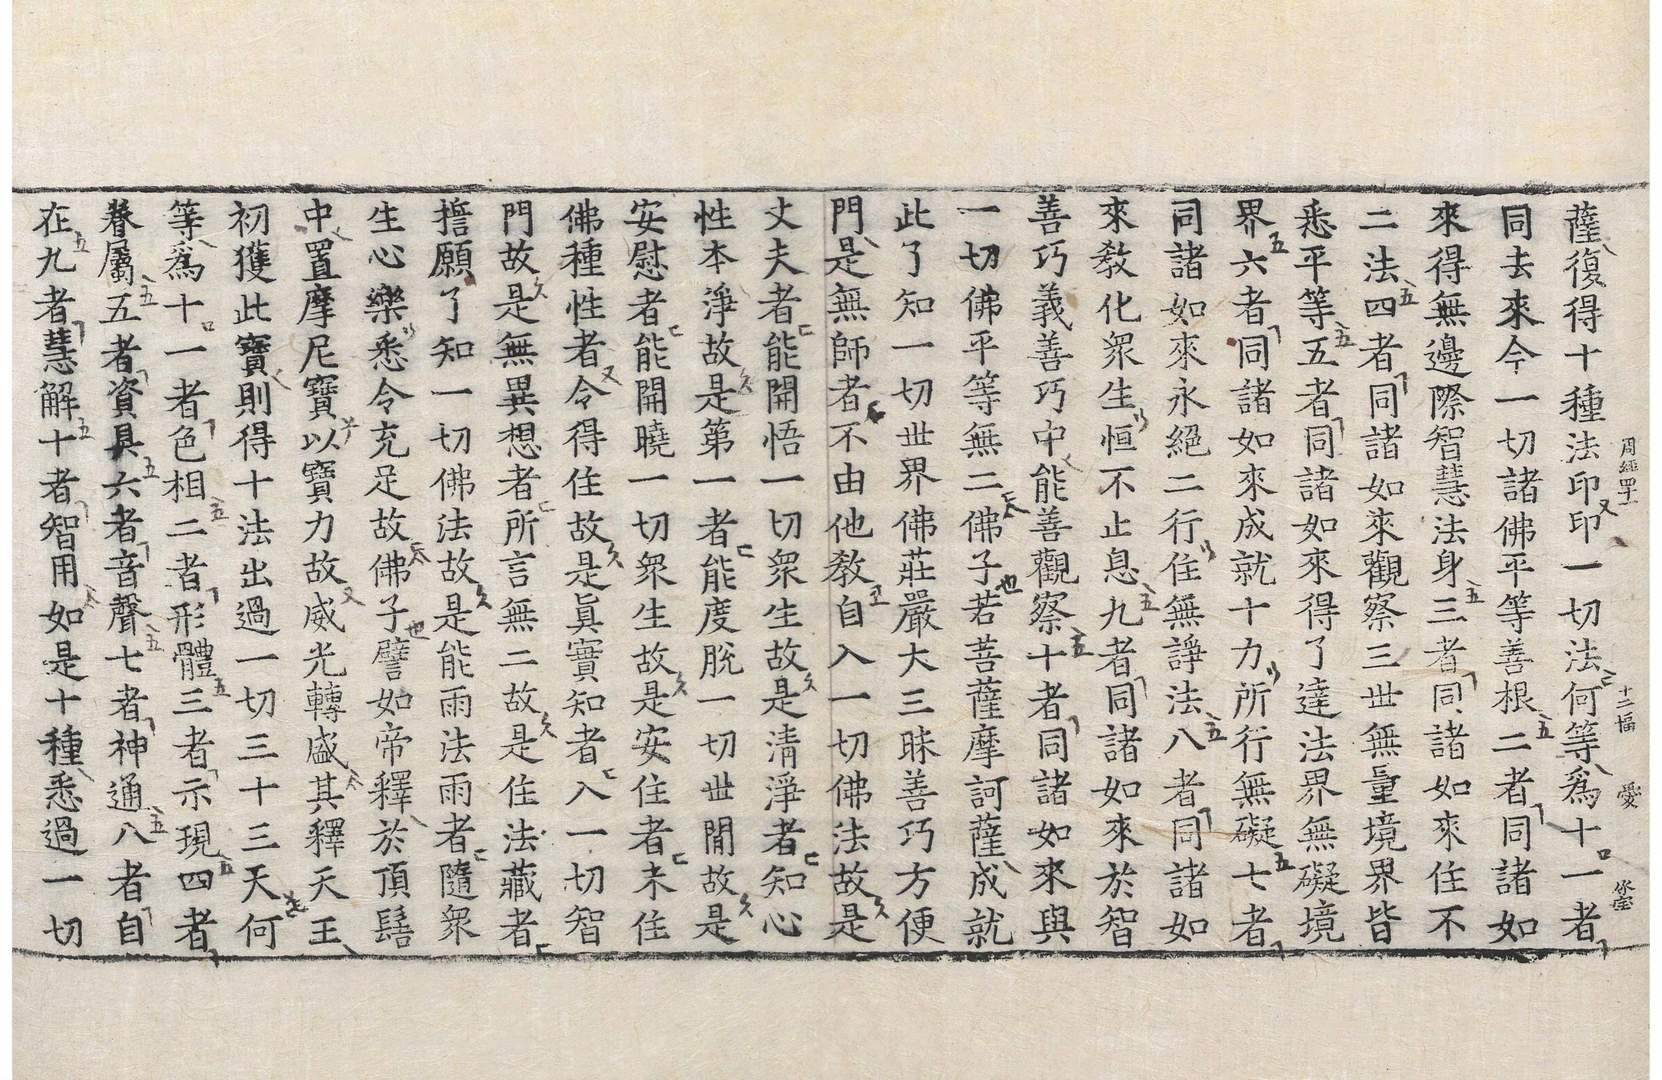 周經 十二幅 愛
薩復得十種法印印一切法何等爲十一者
同去來今一切諸佛平等善根二者同諸如
來得無邊際智慧法身三者同諸如來住不
二法四者同諸如來觀察三世無量境界皆
悉平等五者同諸如來得了達法界無礙境
界六者同諸如來成就十力所行無礙七者
同諸如來永絕二行住無諍法八者同諸如
來敎化衆生恒不止息九者同諸如來於智
善巧義善巧中能善觀察十者同諸如來與
一切佛平等無二佛子若菩薩摩訶薩成就
此了知一切世界佛莊嚴大三昧善巧方便
門是無師者不由他敎自入一切佛法故是
丈夫者能開悟一切衆生故是淸淨者知心
性本淨故是第一者能度脫一切世間故是
安慰者能開曉一切衆生故是安住者未住
佛種性者令得住故是眞實知者入一切智
門故是無異想者所言無二故是住法藏者
誓願了知一切佛法故是能雨法雨者隨衆
生心樂悉令充足故佛子譬如帝釋於頂髻
中置摩尼寶以寶力故威光轉盛其釋天王
初獲此寶則得十法出過一切三十三天何
等爲十一者色相二者形體三者示現四者
眷屬五者資具六者音聲七者神通八者自
在九者慧解十者智用如是十種悉過一切